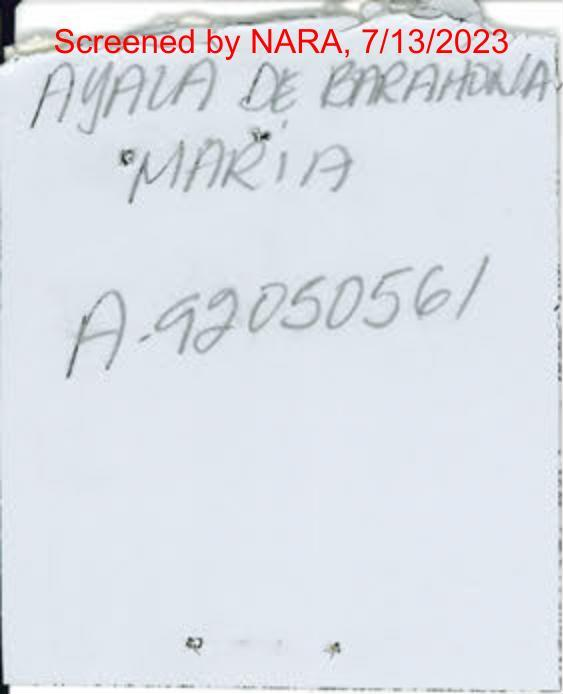 Screened by NARA, 7/13/2023
AYALA DE BARAHONA
MARiA
A-92050561